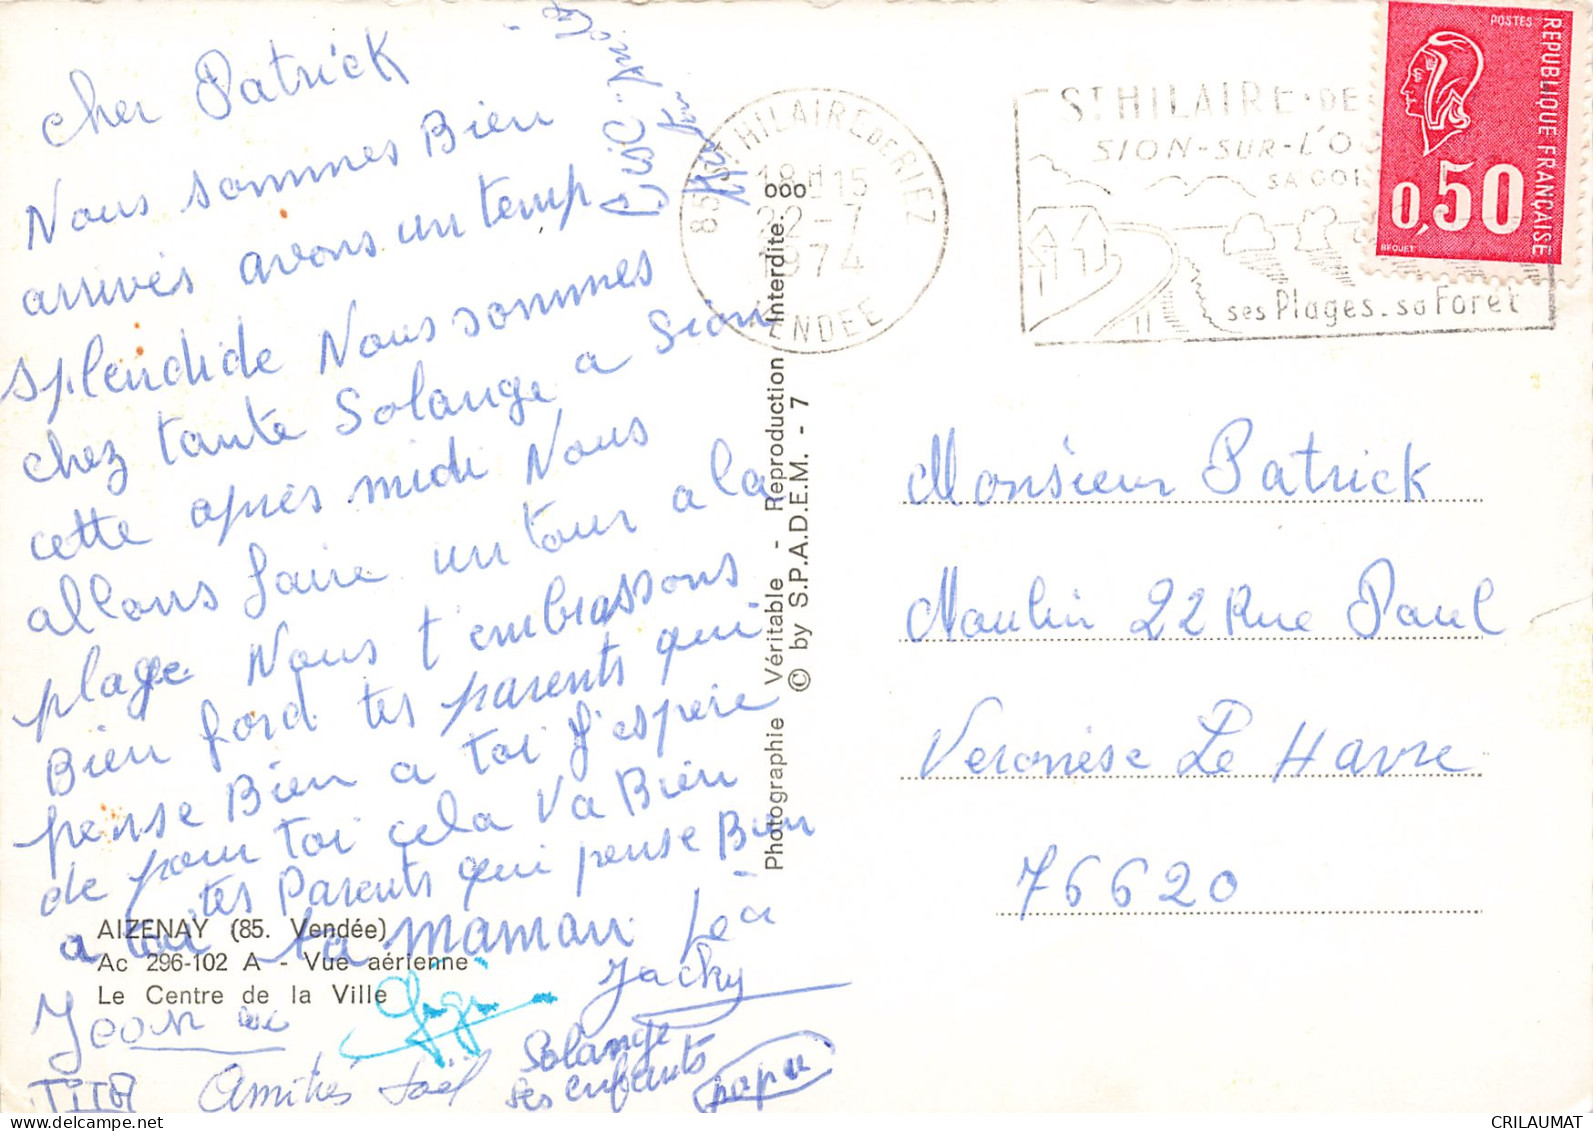 cher Patrick
Nous sommes Bien
arrivés avons un temp
splendide Nous sommes
chez tante Solange a Sion
cette après midi Nous
allons faire un tour a la
plage Nous t'embrassons
Bien ford tes parents qui
pense Bien a toi J'espère
de pour toi cela va Bien
tes Parents qui pense Bien
a toi ta maman Léa
Jacky
Gigi
Solange
ses enfants
papa
Amitiés Joël
TITO
AIZENAY (85. Vendée)
Ac 296-102 A - Vue aérienne
Le Centre de la Ville
Photographie Véritable - Reproduction Interdite.
© by S.P.A.D.E.M. - 7
85 ST HILAIRE DE RIEZ
18H15
22-7
1974
VENDEE
ST HILAIRE-DE
SION-SUR-L'O
SA COR
ses Plages. sa Foret
POSTES
REPUBLIQUE FRANÇAISE
0,50
BEQUET
Monsieur Patrick
Moulin 22 Rue Paul
Veronèse Le Havre
76620
CRILAUMAT